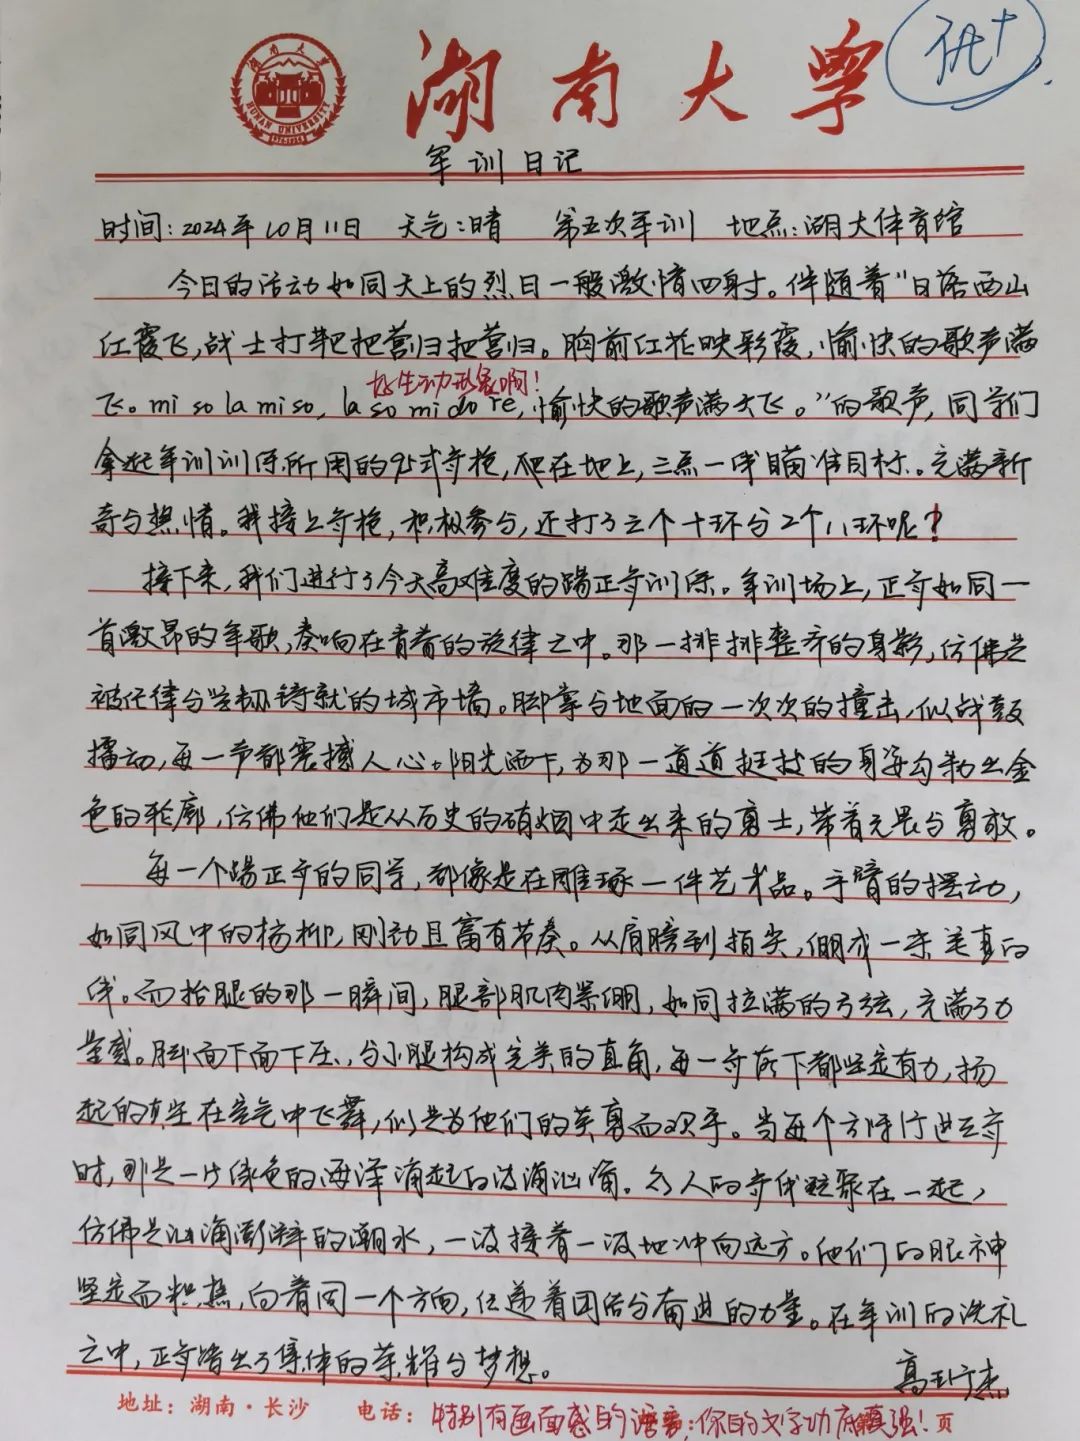 优+
湖南大学
HUNAN UNIVERSITY
军训日记
时间:2024年10月11日 天气:晴 第五次军训 地点:湖大体育馆
今日的活动如同天上的烈日一般激情四射。伴随着“日落西山
红霞飞,战士打靶把营归把营归。胸前红花映彩霞,愉快的歌声满
好生动形象啊!
飞。mi so la mi so, la so mi do re,愉快的歌声满天飞。”的歌声,同学们
拿起军训训练所用的95式步枪,趴在地上,三点一线瞄准目标。充满新
奇与热情。我接上步枪,积极参与,还打了三个十环与2个八环呢?
接下来,我们进行了今天高难度的踢正步训练。军训场上,正步如同一
首激昂的军歌,奏响在青春的旋律之中。那一排排整齐的身影,仿佛是
被纪律与坚韧铸就的城市墙。脚掌与地面的一次次的撞击,似战鼓
擂动,每一声都震撼人心。阳光洒下,为那一道道挺拔的身姿勾勒出金
色的轮廓,仿佛他们是从历史的硝烟中走出来的勇士,带着无畏与勇敢。
每一个踢正步的同学,都像是在雕琢一件艺术品。手臂的摆动,
如同风中的杨柳,刚劲且富有节奏。从肩膀到指尖,绷成一条笔直的
线。而抬腿的那一瞬间,腿部肌肉紧绷,如同拉满的弓弦,充满了力
量感。脚面下面下压,与小腿构成完美的直角,每一步落下都坚定有力,扬
起的灰尘在空气中飞舞,似是为他们的英勇而欢呼。当每个方阵行进正步
时,那是一片绿色的海洋涌起的波涌汹涌。众人的步伐凝聚在一起,
仿佛是汹涌澎湃的潮水,一波接着一波地冲向远方。他们的眼神
坚定而炽热,向着同一个方向,传递着团结与奋进的力量。在军训的洗礼
之中,正步踏出了集体的荣耀与梦想。
地址:湖南·长沙 电话: 页
特别有画面感的语言;你的文字功底真强!